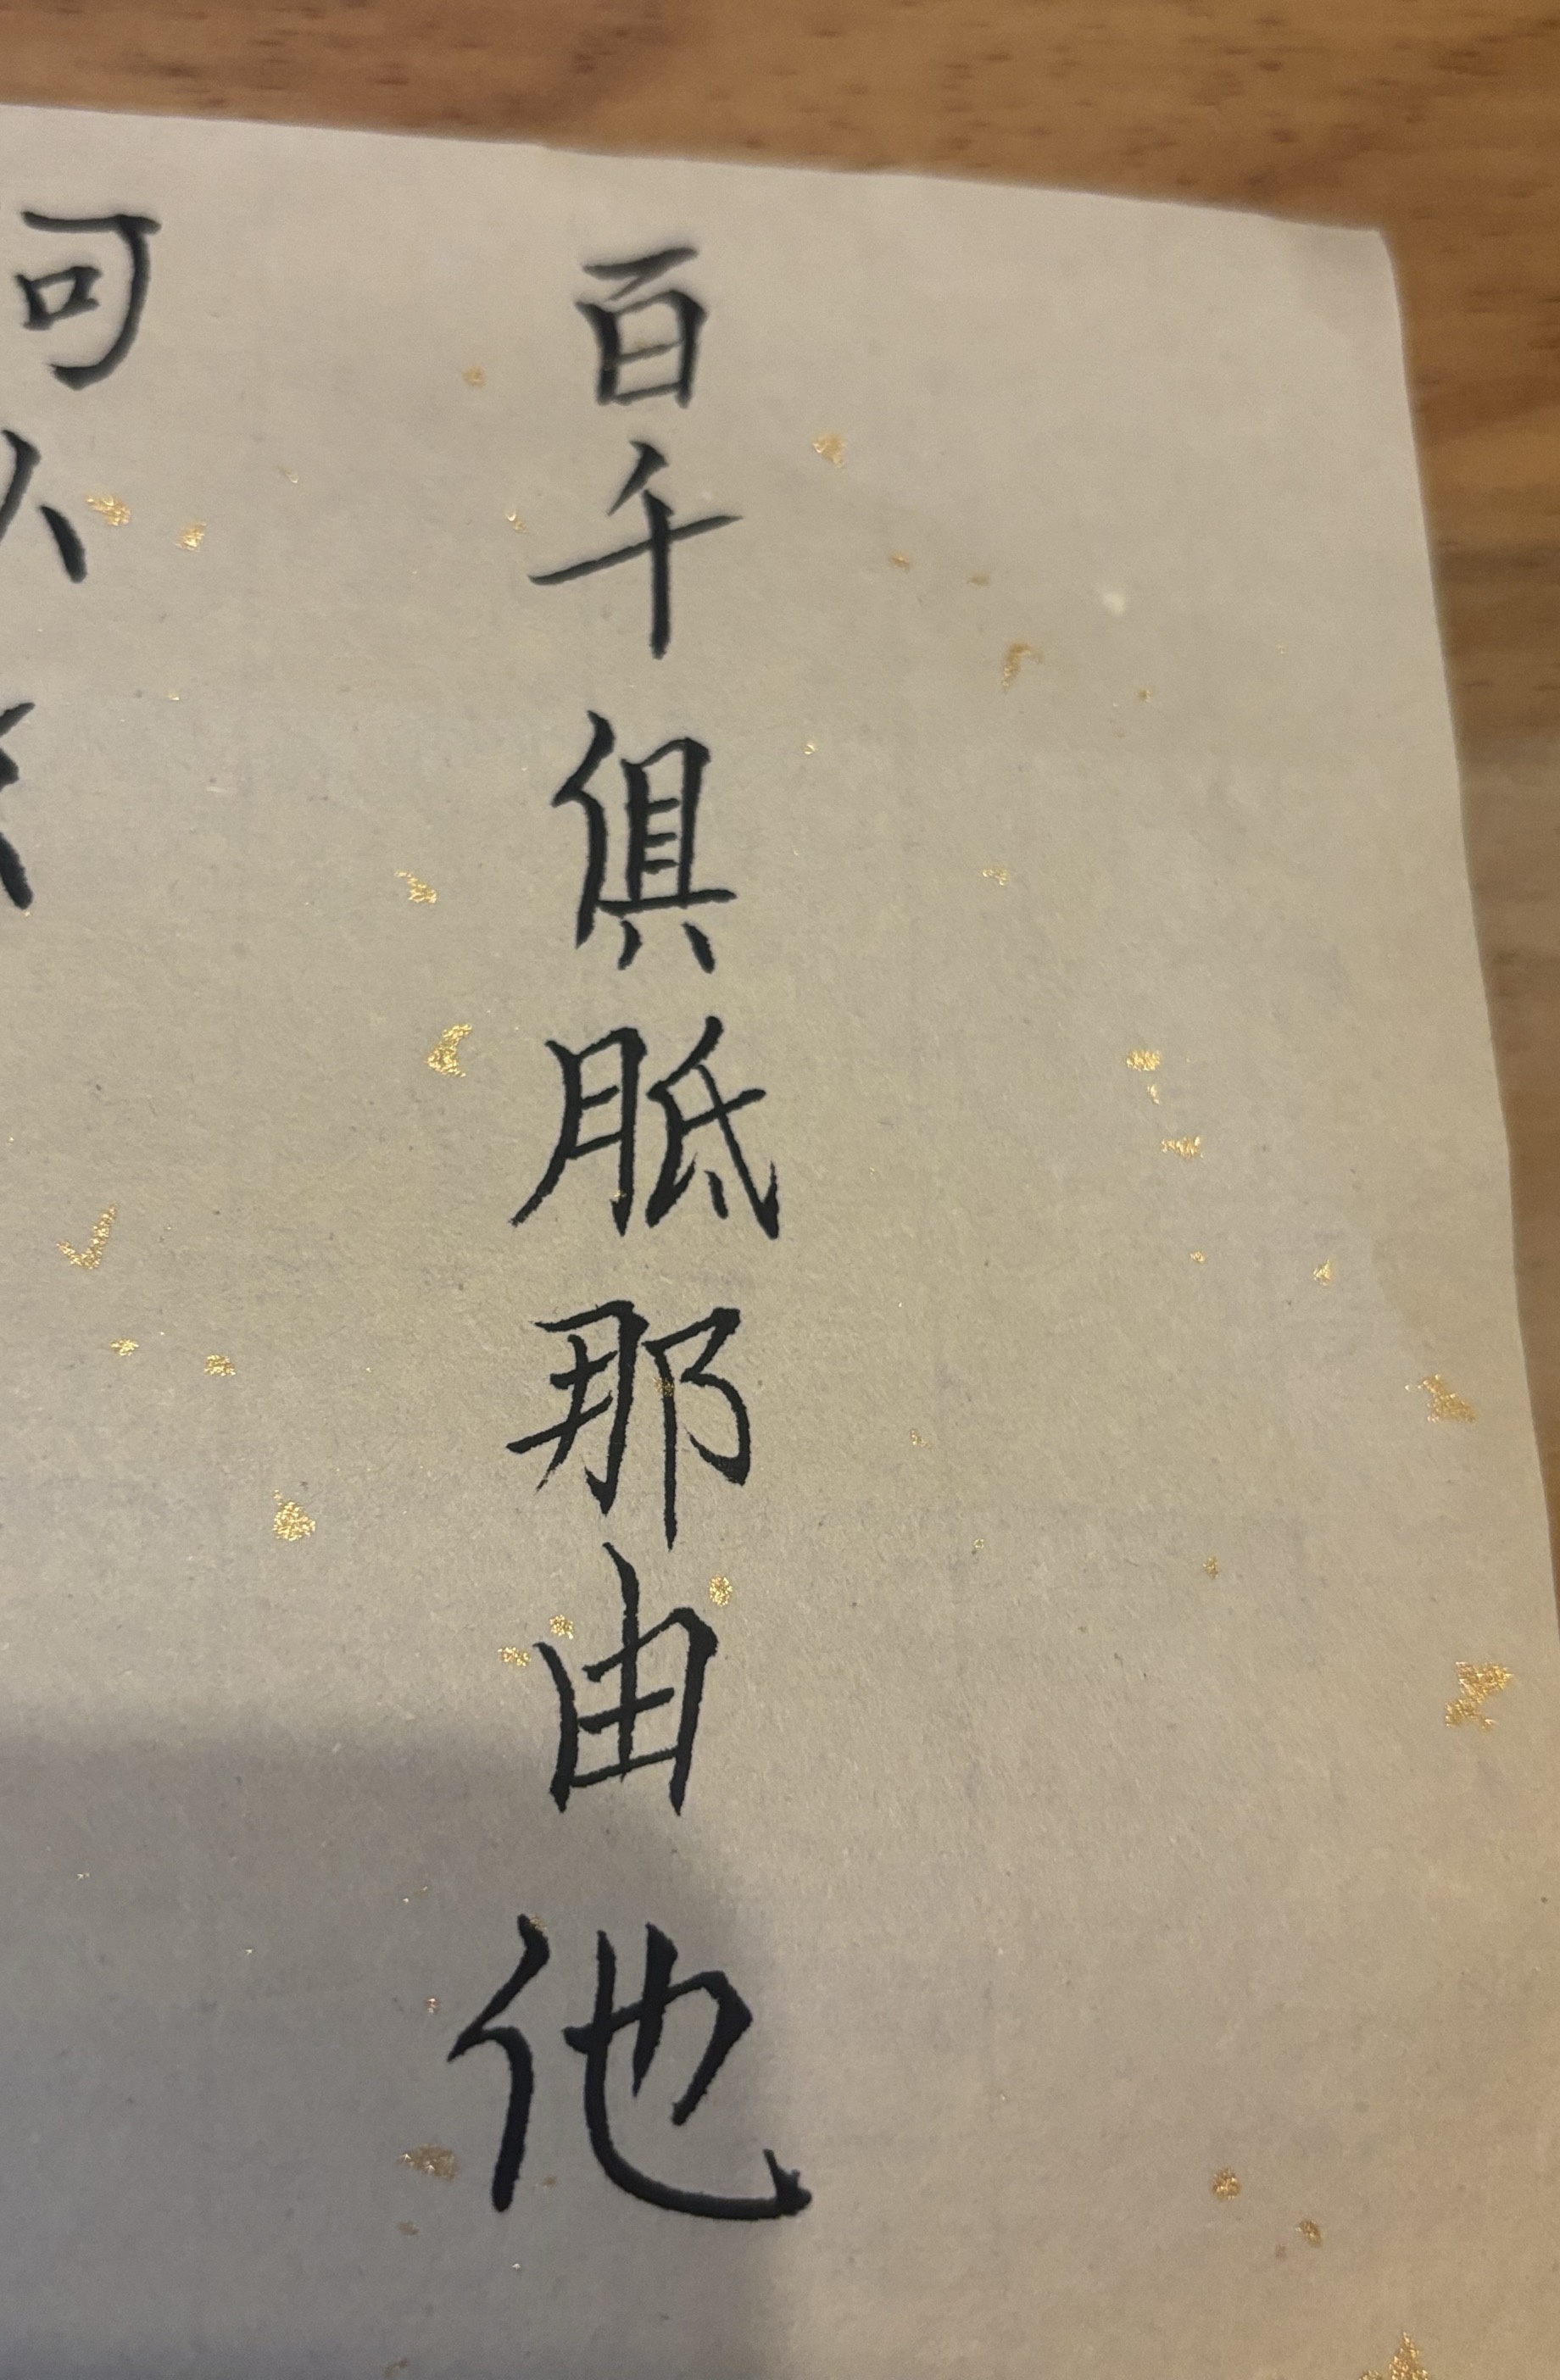 百千俱胝那由他